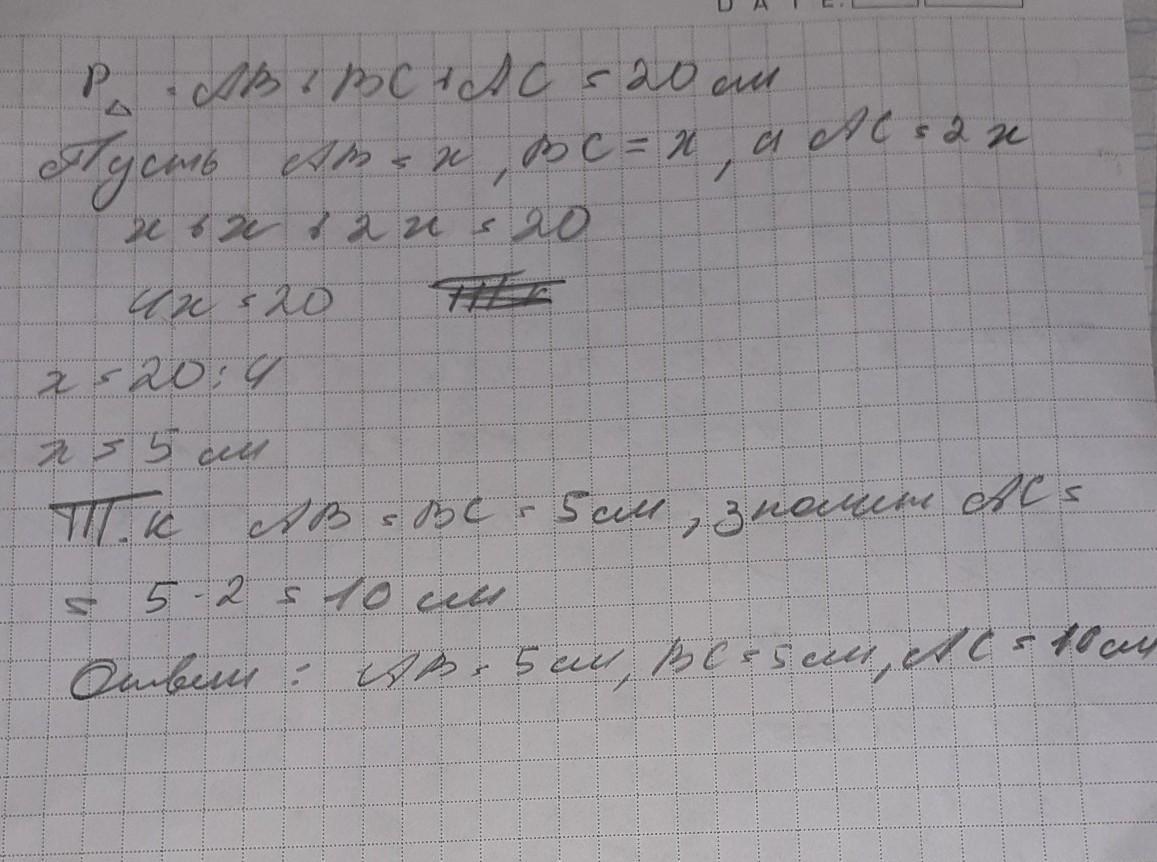 DATE:
P△ = AB + BC + AC = 20 см
Пусть AB = x, BC = x, а AC = 2x
x + x + 2x = 20
4x = 20
x = 20 : 4
x = 5 см
Т.к AB = BC = 5 см, значит AC =
= 5 · 2 = 10 см
Ответ : AB = 5 см, BC = 5 см, AC = 10 см